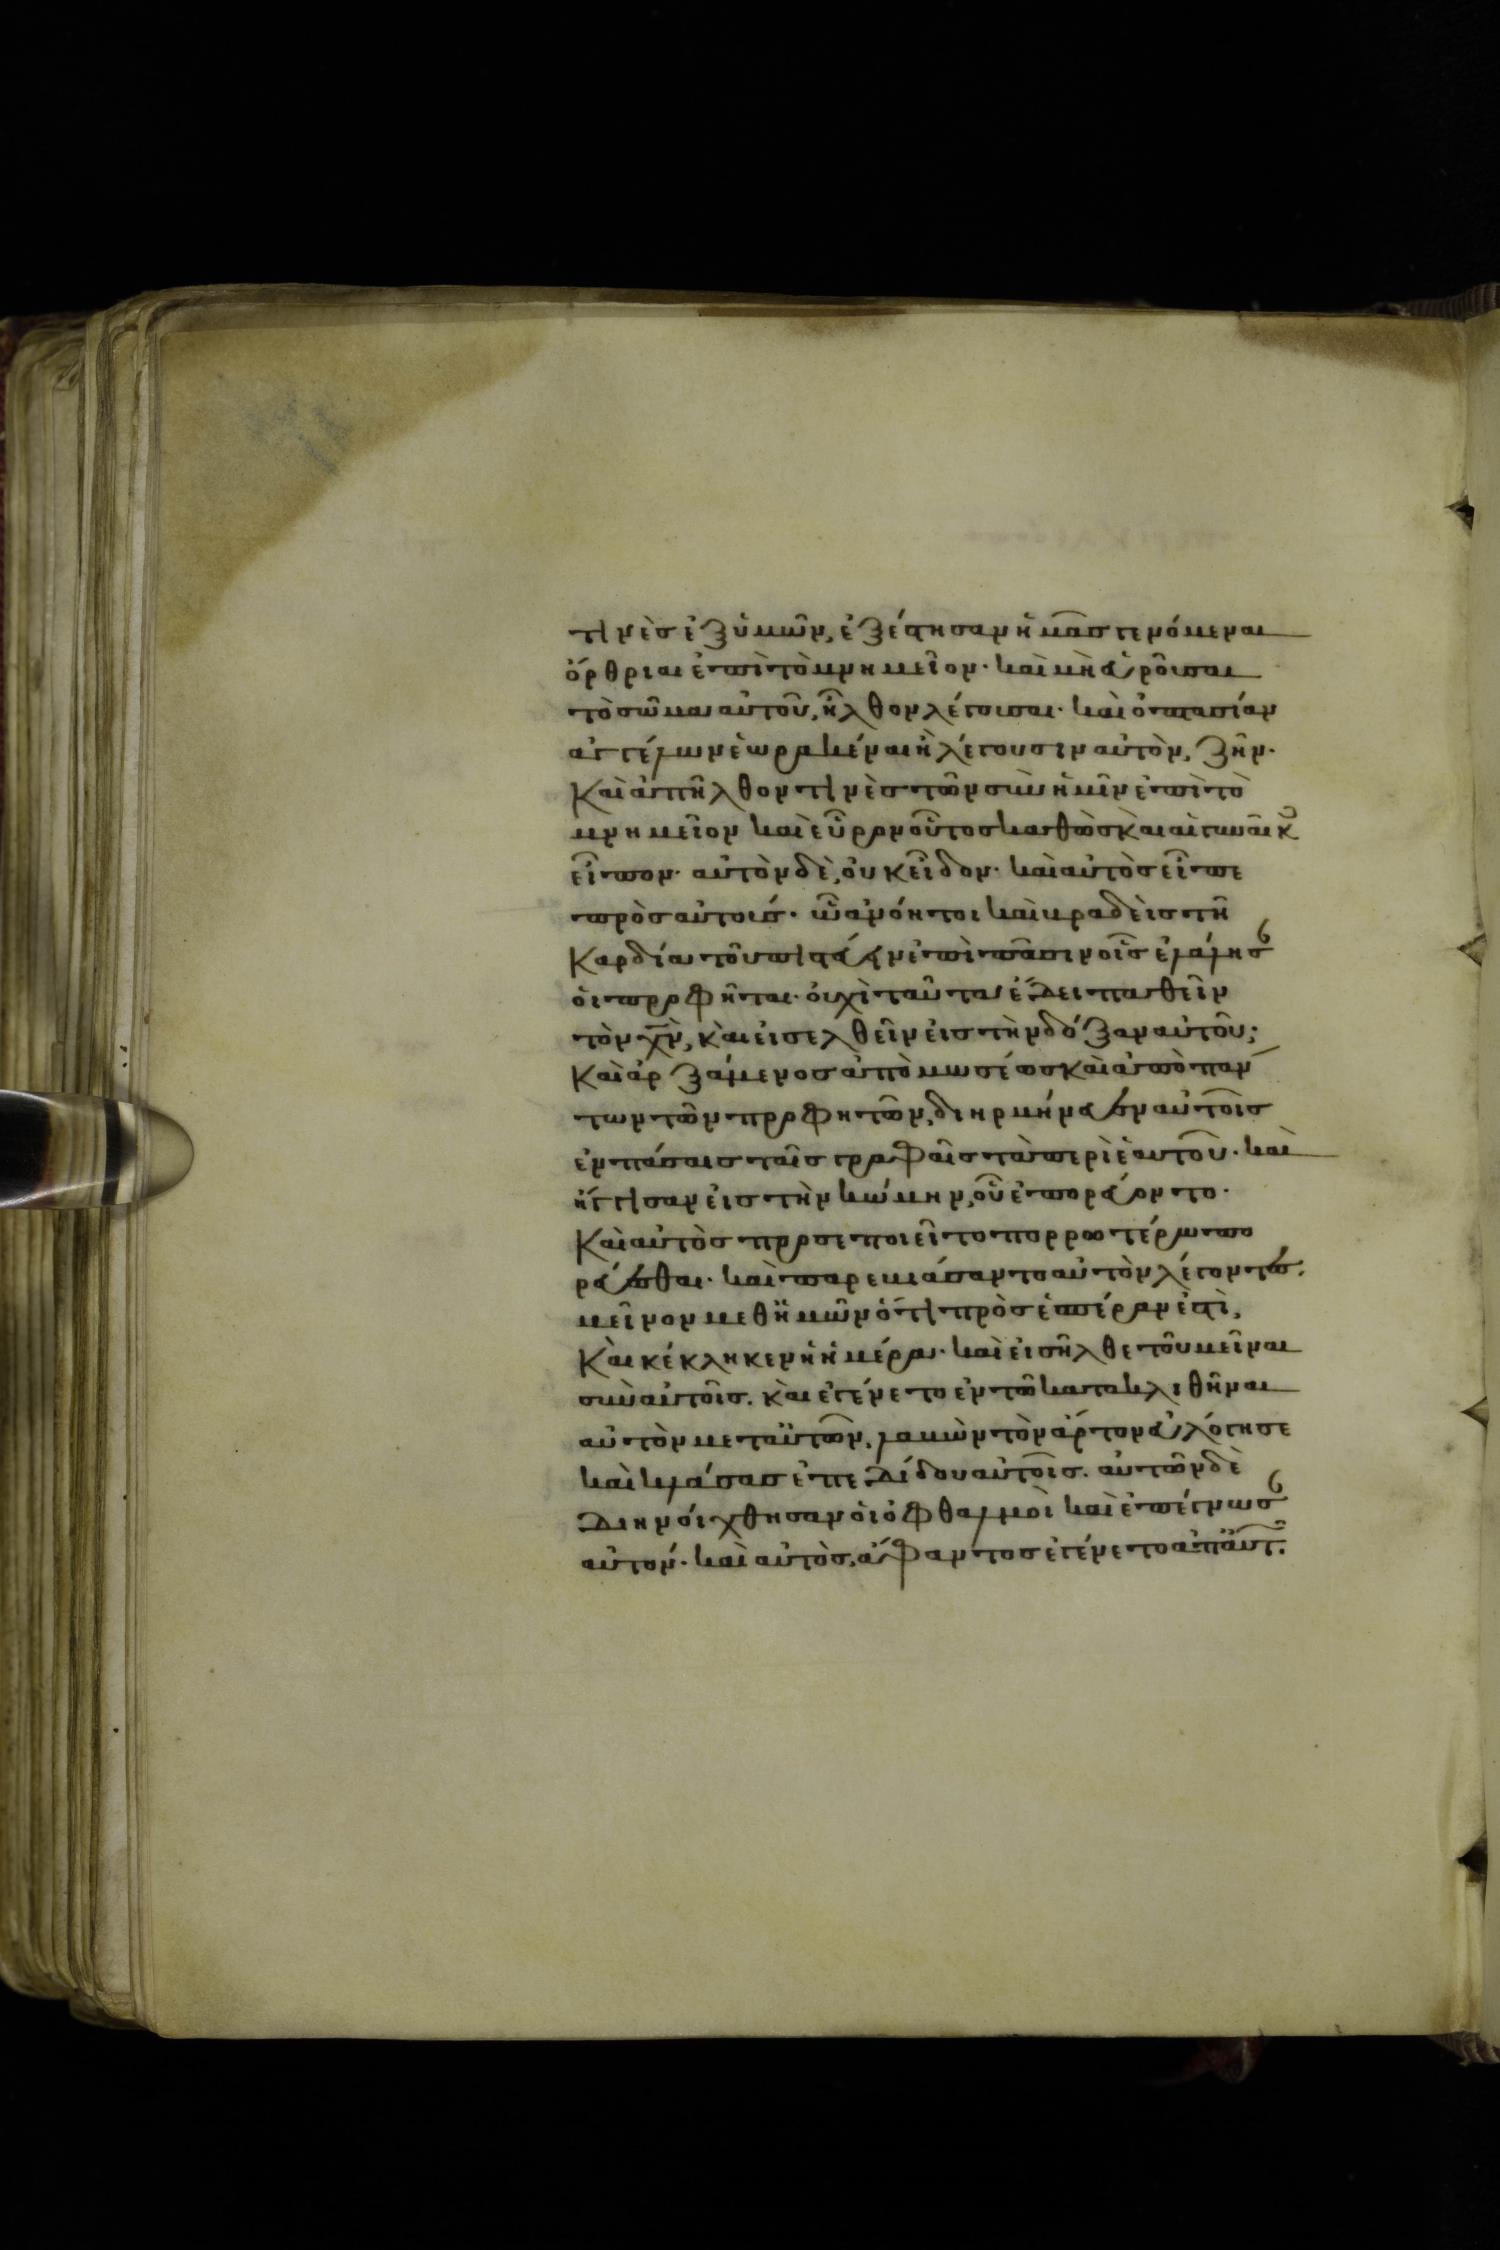 τινὲς ἐξ ὑμῶν, ἐξέστησαν ἡμᾶς γενόμεναι
ὄρθριαι ἐπὶ τὸ μνημεῖον· καὶ μὴ εὑροῦσαι
τὸ σῶμα αὐτοῦ, ἦλθον λέγουσαι· καὶ ὀπτασίαν
ἀγγέλων ἑωρακέναι ἢ λέγουσιν αὐτὸν, ζῆν·
Καὶ ἀπῆλθον τινὲς τῶν σὺν ἡμῖν ἐπὶ τὸ
μνημεῖον καὶ εὗρον οὕτος καθὼς καὶ αἱ γυναῖκ
εἶπον· αὐτὸν δὲ, οὐκ εἶδον· καὶ αὐτὸς εἶπε
πρὸς αὐτούς· ὦ ἀνόητοι καὶ βραδεῖς τῆ
Καρδία τοῦ πιστεύειν ἐπὶ πᾶσιν οἷς ἐλάλησ
οἱ προφῆται· οὐχὶ ταῦτα ἔδει παθεῖν
τὸν χν, καὶ εἰσελθεῖν εἰς τὴν δόξαν αὐτοῦ;
Καὶ ἀρξάμενος ἀπὸ μωσέως καὶ ἀπὸ πάν
των τῶν προφητῶν, διηρμήνευεν αὐτοῖς
ἐν πάσαις ταῖς γραφαῖς τὰ περὶ ἑαυτοῦ· καὶ
ἤγγισαν εἰς τὴν κώμην, οὗ ἐπορεύοντο·
Καὶ αὐτὸς προσεποιεῖτο πορρωτέρω πο
ρεύεσθαι· καὶ παρεβιάσαντο αὐτὸν λέγοντες·
μεῖνον μεθ' ἡμῶν ὅτι πρὸς ἑσπέραν ἐστὶ,
Καὶ κέκληκεν ἡ ἡμέρα· καὶ εἰσῆλθε τοῦ μεῖναι
σὺν αὐτοῖς. καὶ ἐγένετο ἐν τῶ κατακλιθῆναι
αὐτὸν μετ' αὐτῶν, λαβὼν τὸν ἄρτον εὐλόγησε
καὶ κλάσας ἐπεδίδου αὐτοῖς. αὐτῶν δὲ
διηνοίχθησαν οἱ ὀφθαλμοὶ καὶ ἐπέγνωσ
αὐτόν· καὶ αὐτὸς, ἄφαντος ἐγένετο ἀπ' αὐτ.